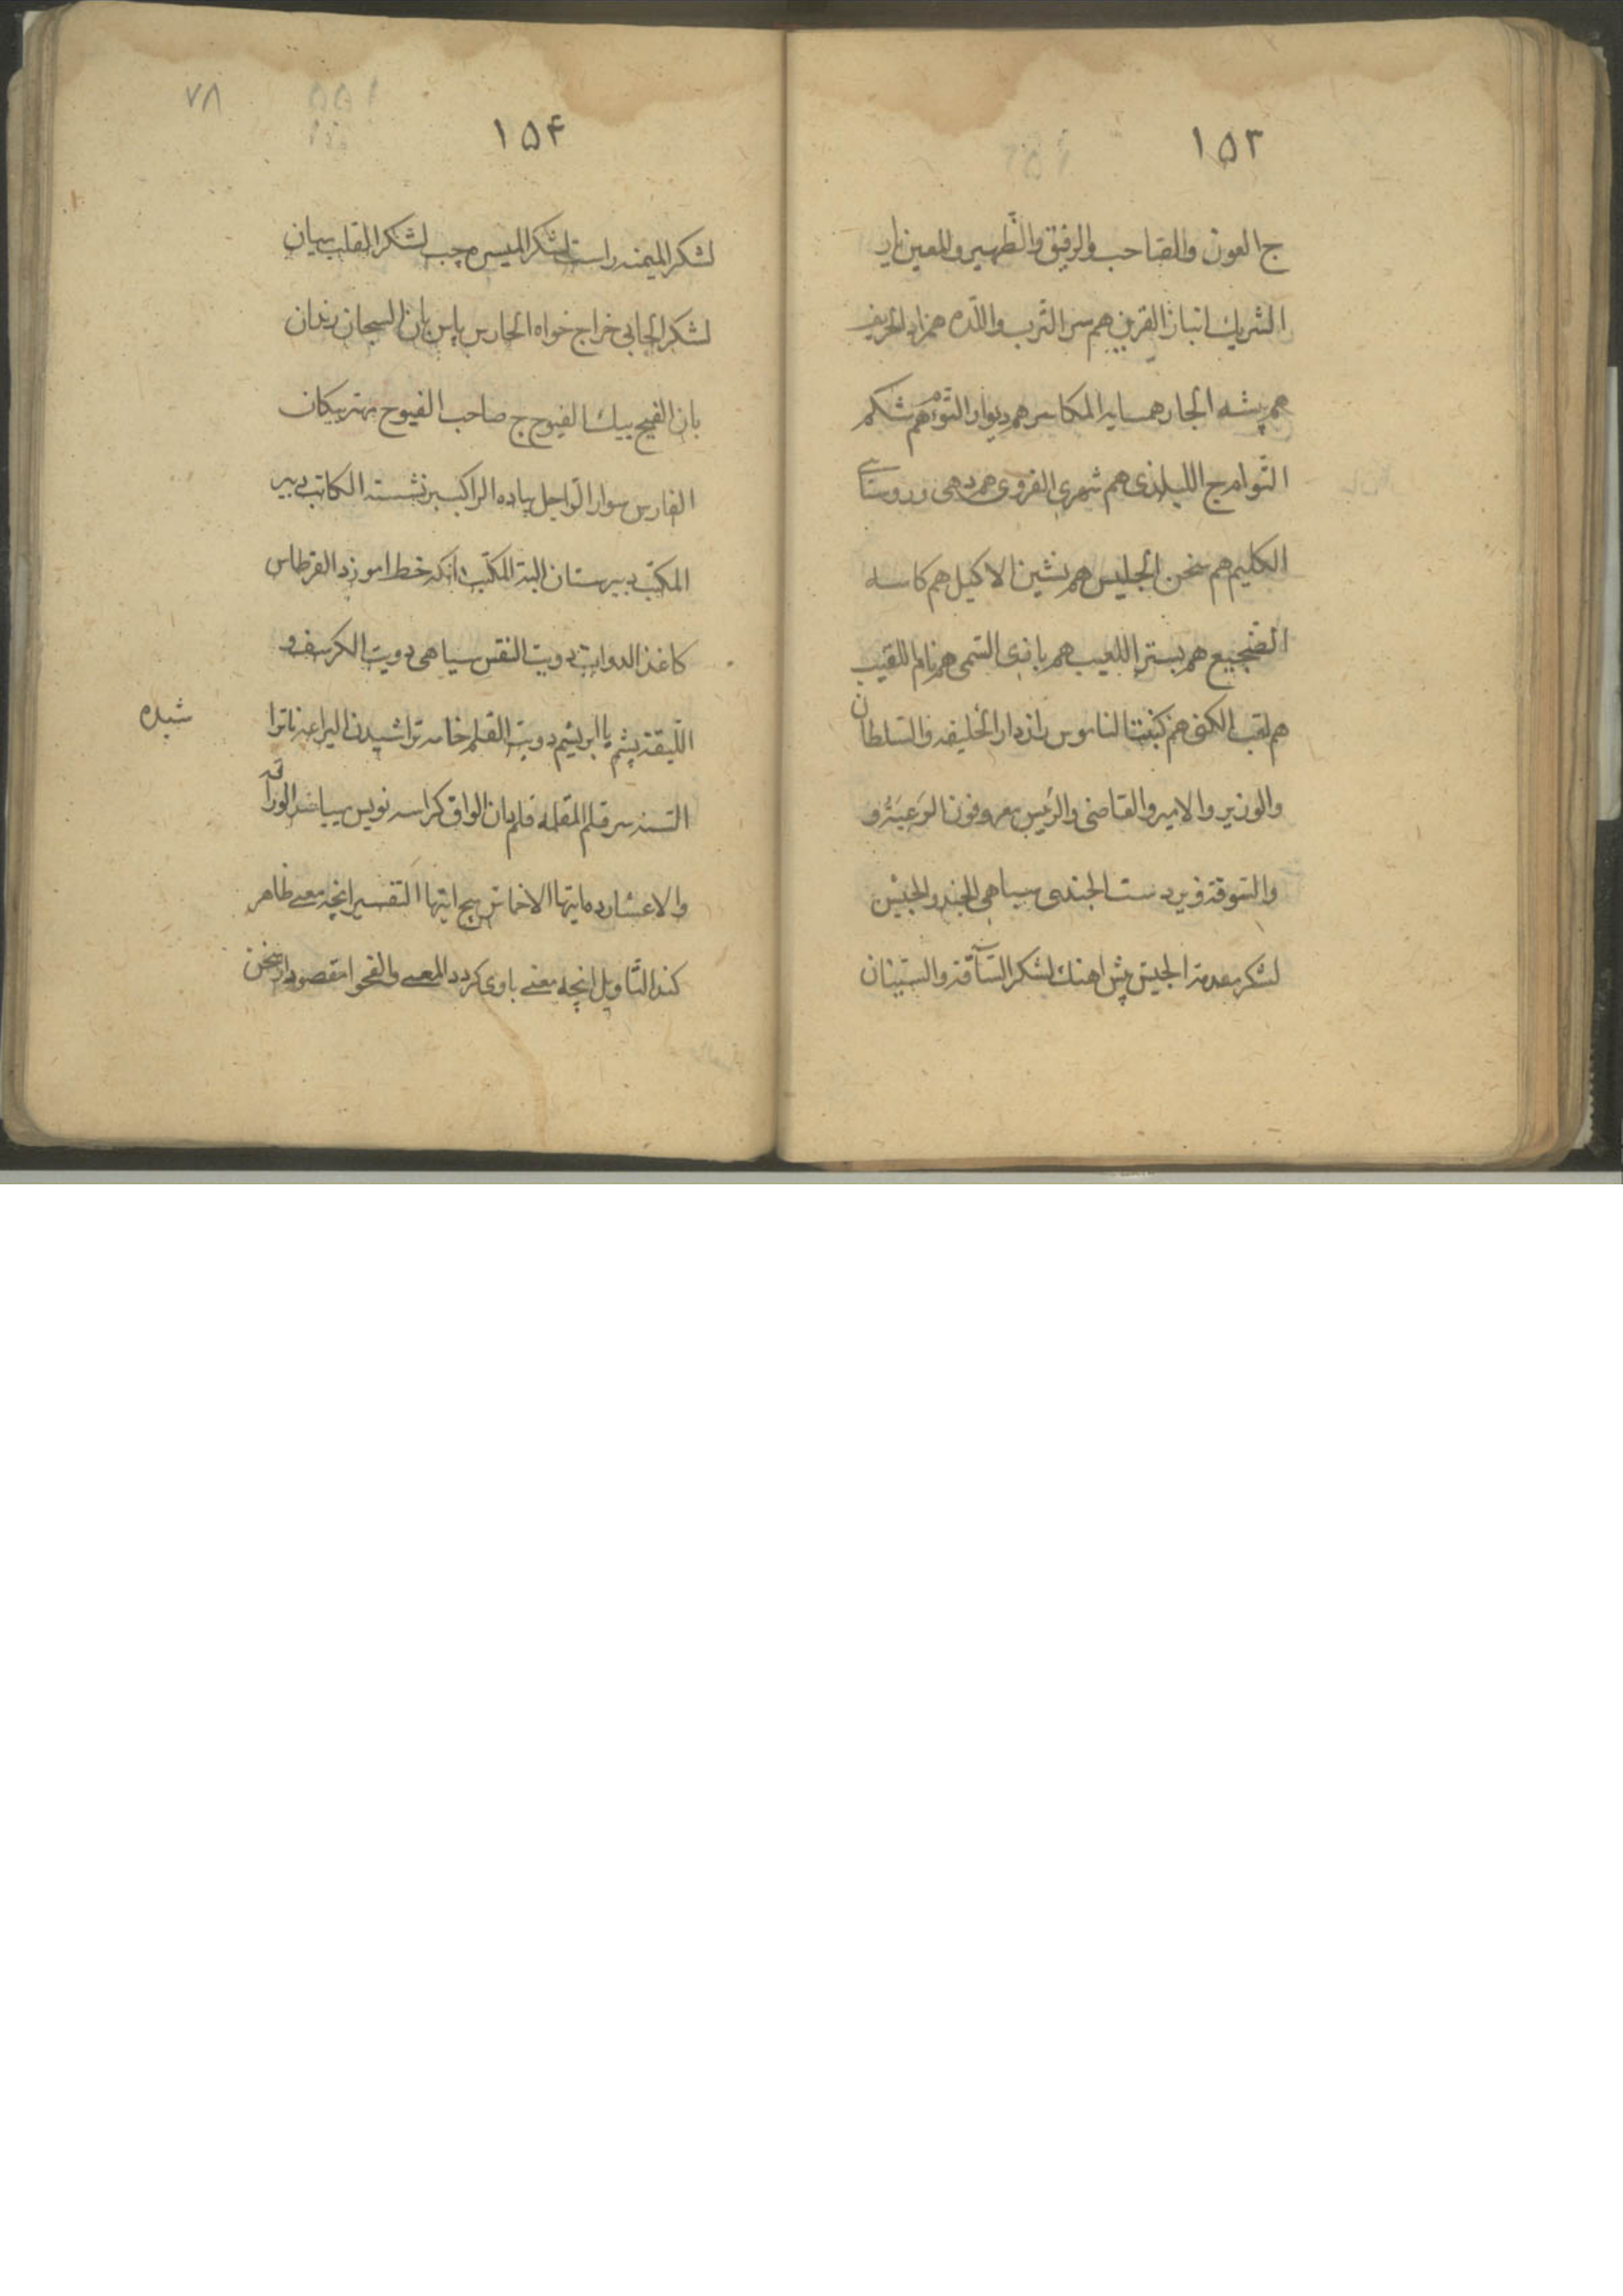 ۱۵۳
ج العون والصاحب والرفيق والظهير والمعين يار
الشريك انباز القرين هم سر الترب واللده همزاد الحريف
هم پشه الجار همسايه المكاسر هم ديوار التوأم هم شكم
التوامج البلدى هم شهرى القروى هم دهى وروستاى
الكليم هم سخن الجليس هم نشين الاكيل هم كاسه
الضجيع هم بستر اللعيب هم بازى السمى هم نام اللقيب
هم لقب الكنى هم كنيت الناموس رازدار الخليفه والسلطان
والوزير والامير والقاضى والرئيس معروفون الرعية و
والسوقة فرود ست الجندى سپاهى الجند والجيش
لشكر مقدمة الجيش پيش اهنك لشكر الساقة
۷۸
۱۵۴
لشكر الميمنه راست لشكر الميسره چپ لشكر القلب ميان
لشكر الجابى خراج خواه الحارس پاس بان السجان زندان
بان الفيج پيك الفيوج ج صاحب الفيوج مهتر پيكان
الفارس سوار الراجل پياده الراكب برنشسته الكاتب دبير
المكتب دبيرستان المكتب انكه خط اموزد القرطاس
كاغذ الدوات دويت النقس سياهى دويت الكرسف و
الليقة پشم يا ابريشم دويت القلم خامه تراشيدن اليراعه ناترا
شيده
سر قلم المقلمه قلمدان الوراق كراسه نويس الوراقه
والاعشار ده ايتها الاخماس پنج ايتها التفسير انچه معنى ظاهر
كند التاويل انچه معنى باوى كردد المعنى والفحوا مقصود از سخن